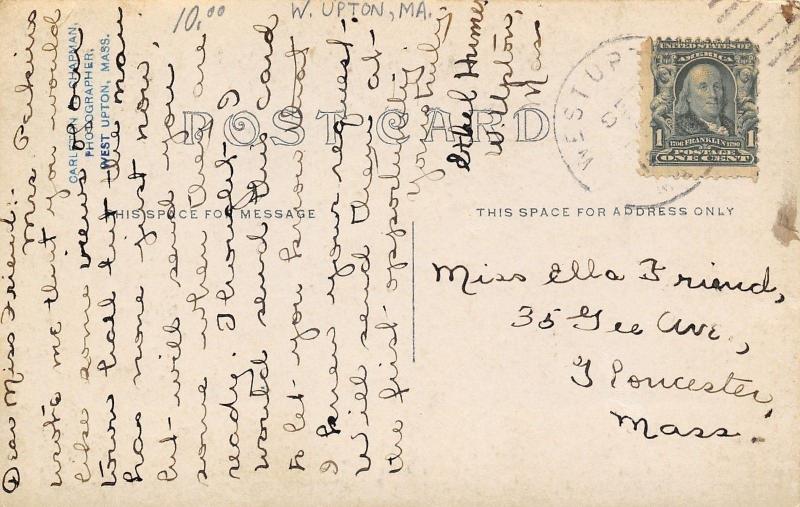 10.00
W. UPTON, MA.
CARLETON E. CHAPMAN,
PHOTOGRAPHER,
WEST UPTON, MASS.
POST CARD
THIS SPACE FOR MESSAGE
THIS SPACE FOR ADDRESS ONLY
Dear Miss Friend:-
Mrs. Perkins
wrote me that you would
like some views of our
town hall but the man
has none just now.
but will send you
some when they are
ready. I thought I
would send this card
to let you know that
I knew your request.
Will send them at
the first opportunity.
yours truly,
Ethel Humes
W. Upton,
Mass
WEST UPTON
UNITED STATES OF
AMERICA
1706 FRANKLIN 1790
1 1
POSTAGE
ONE CENT
Miss Ella Friend,
35 Gee Ave.,
Gloucester,
Mass.